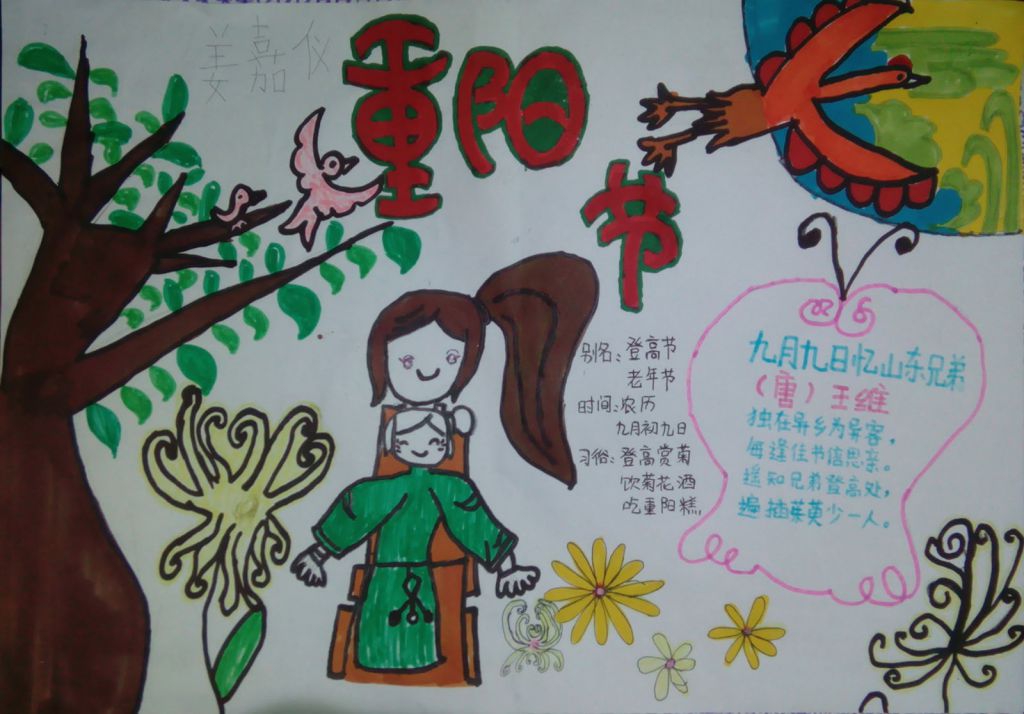 姜嘉仪
重阳节
别名：登高节
老年节
时间：农历
九月初九日
习俗：登高赏菊
饮菊花酒
吃重阳糕
九月九日忆山东兄弟
（唐）王维
独在异乡为异客，
每逢佳书信思亲。
遥知兄弟登高处，
遍插茱萸少一人。